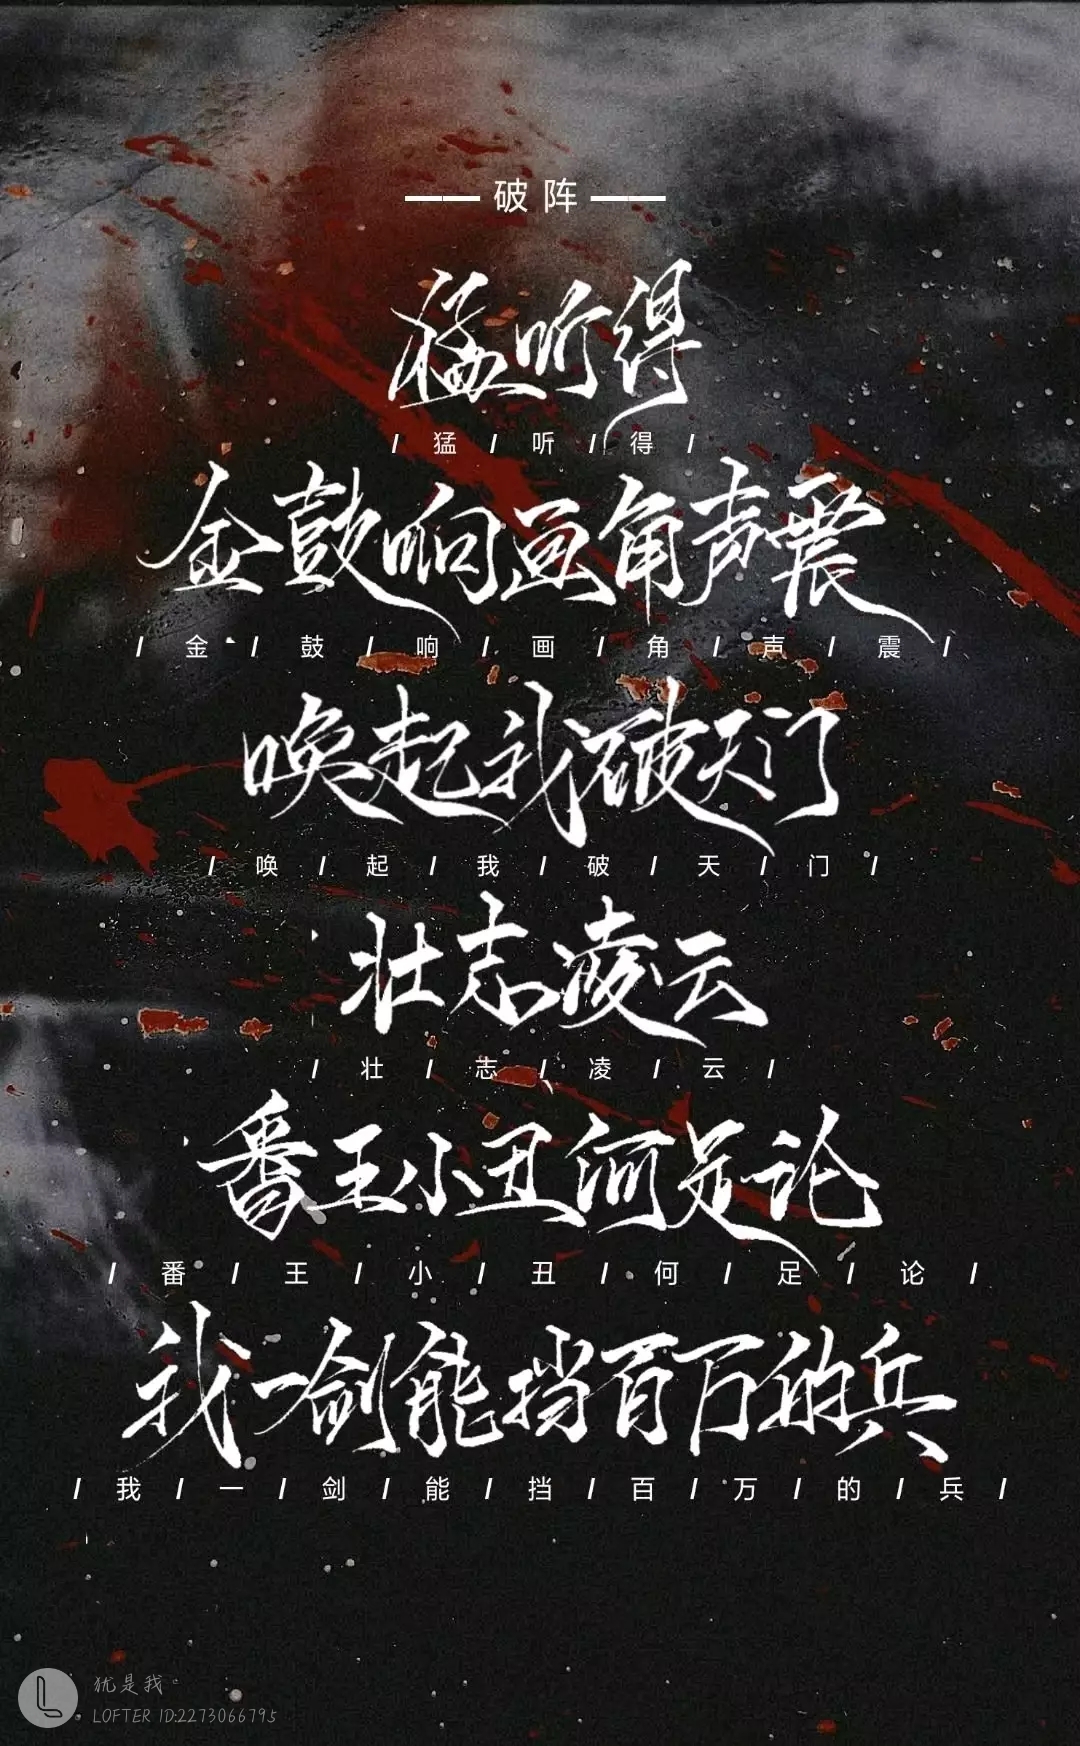 —— 破阵 ——
猛听得
/ 猛 / 听 / 得 /
金鼓响画角声震
/ 金 / 鼓 / 响 / 画 / 角 / 声 / 震 /
唤起我破天门
/ 唤 / 起 / 我 / 破 / 天 / 门 /
壮志凌云
/ 壮 / 志 / 凌 / 云 /
番王小丑何足论
/ 番 / 王 / 小 / 丑 / 何 / 足 / 论 /
我一剑能挡百万的兵
/ 我 / 一 / 剑 / 能 / 挡 / 百 / 万 / 的 / 兵 /
犹是我。
LOFTER ID:2273066795